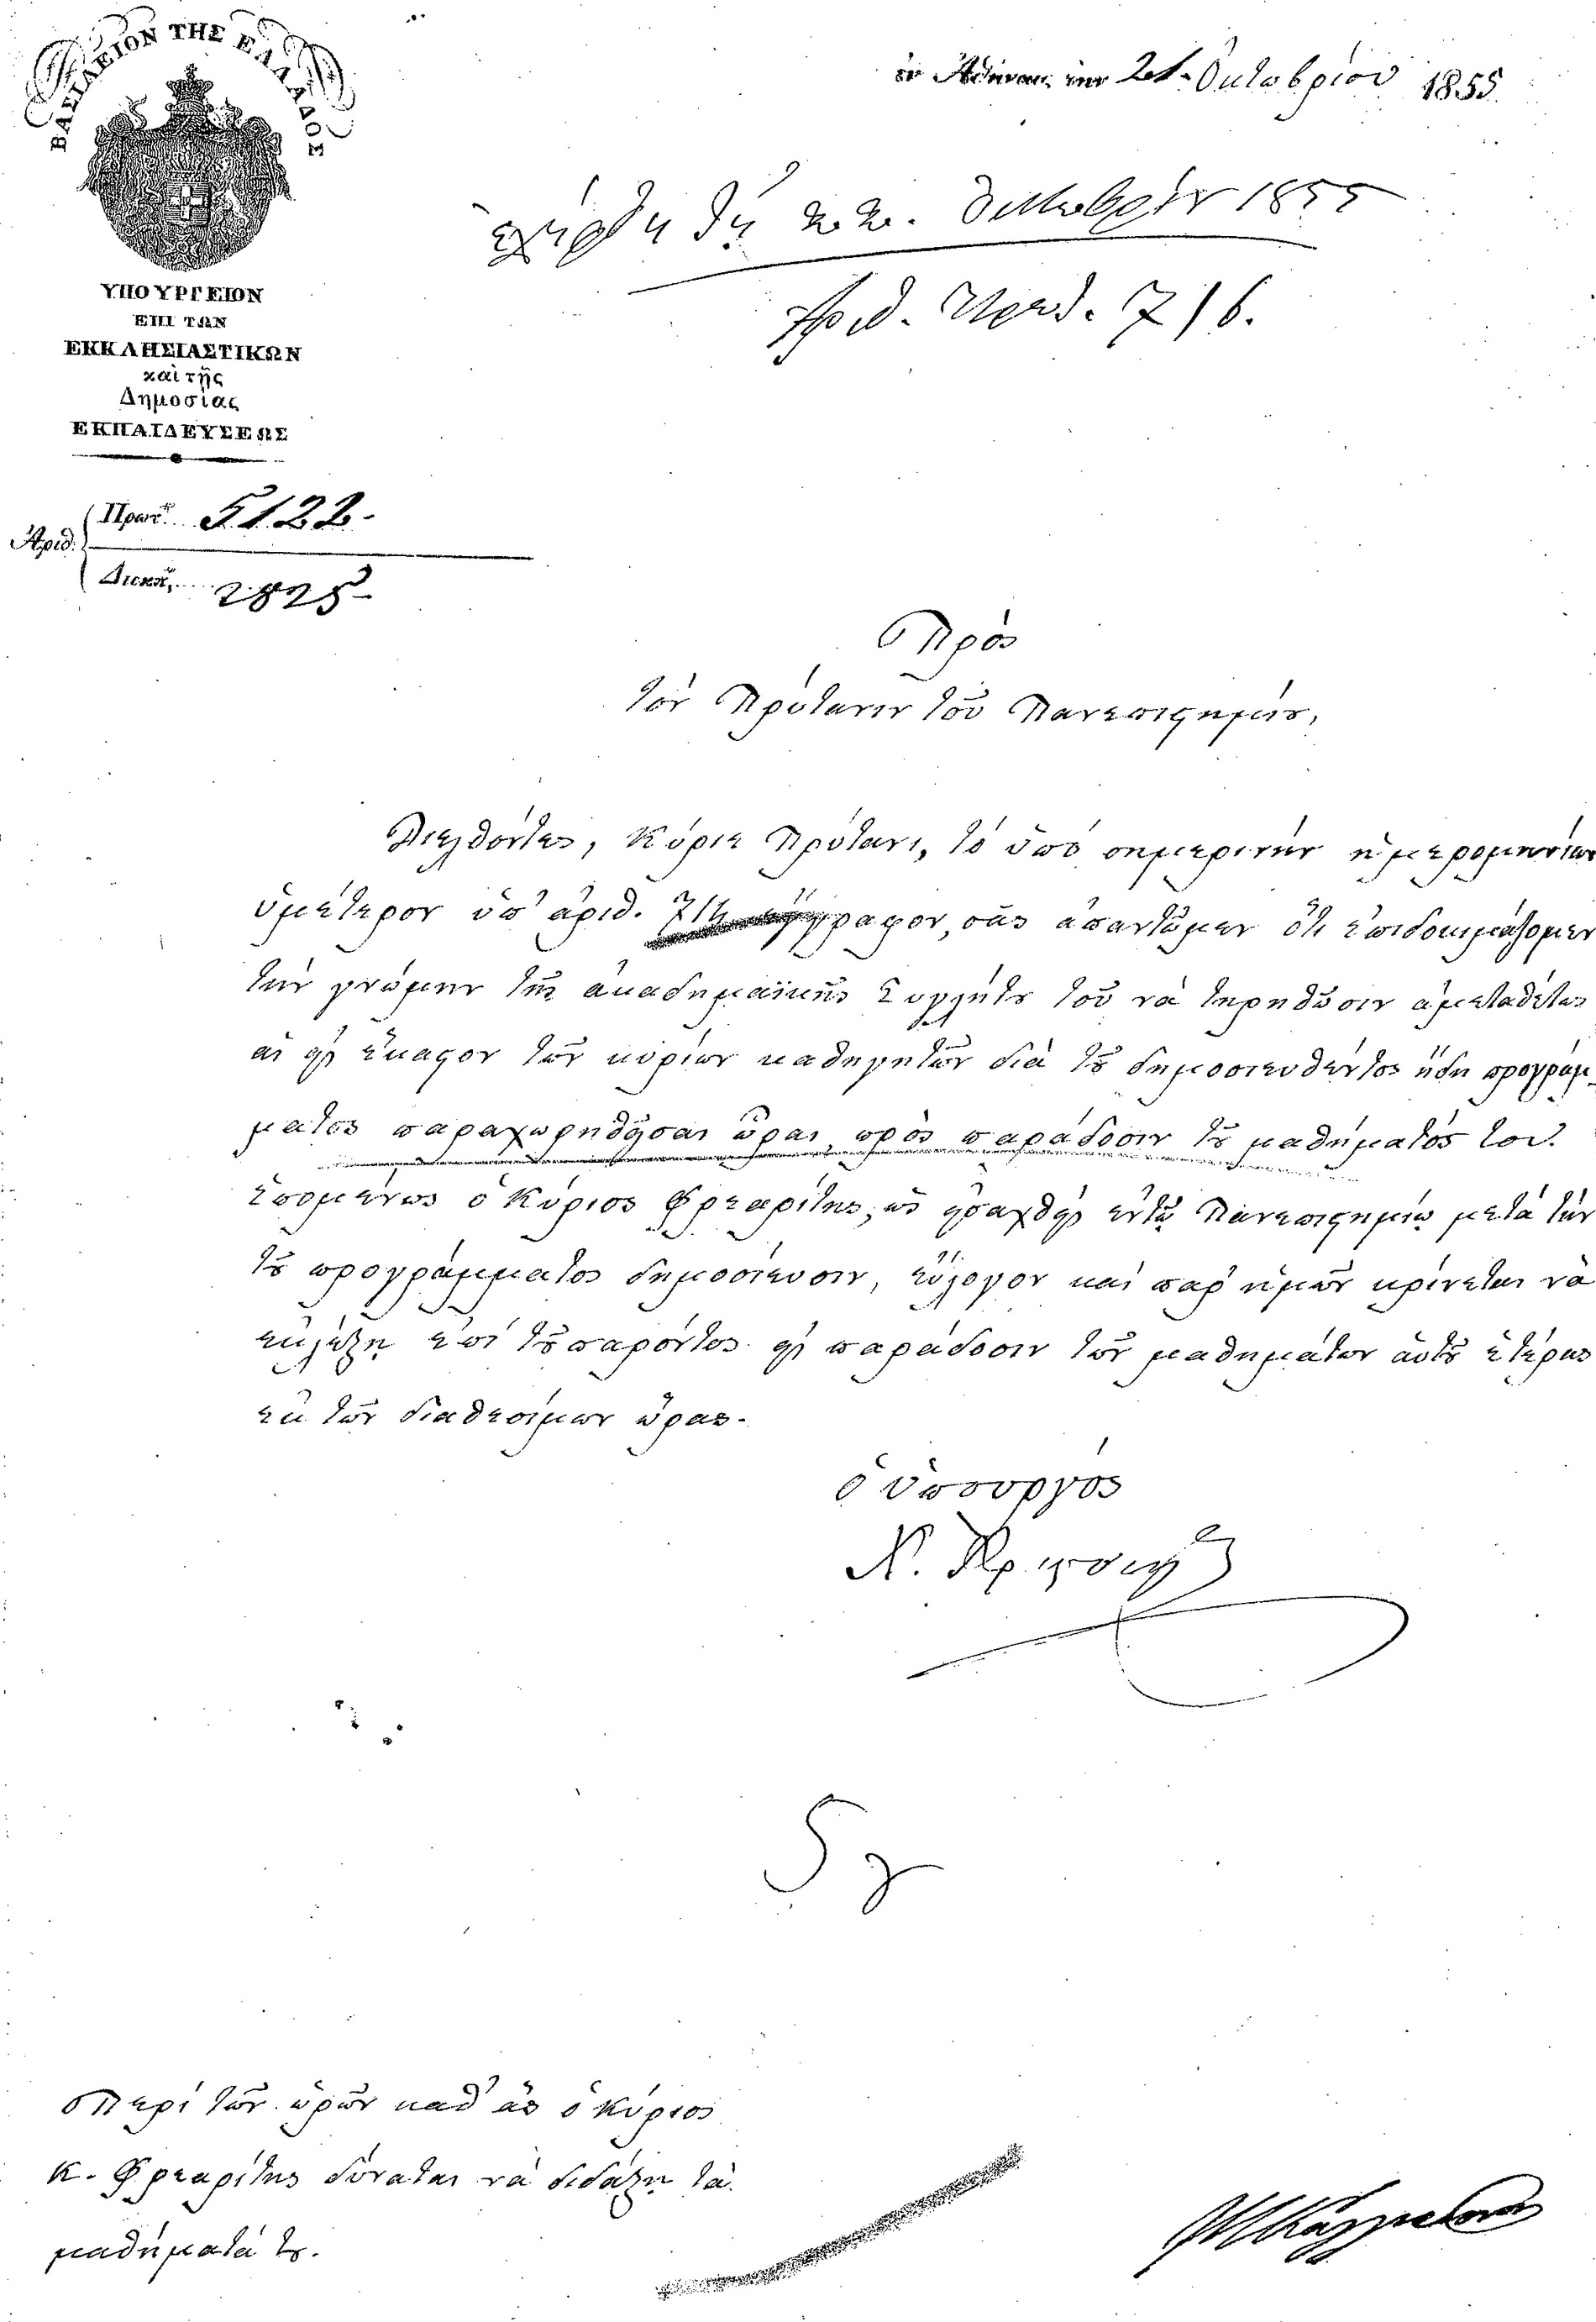 ΒΑΣΙΛΕΙΟΝ ΤΗΣ ΕΛΛΑΔΟΣ
ΥΠΟΥΡΓΕΙΟΝ
ΕΠΙ ΤΩΝ
ΕΚΚΛΗΣΙΑΣΤΙΚΩΝ
καὶ τῆς
Δημοσίας
ΕΚΠΑΙΔΕΥΣΕΩΣ
Ἀριθ. Πρωτ. 5122.
Διεκπ. 2825
ἐν Ἀθήναις τὴν 21. Ὀκτωβρίου 1855.
ἐλήφθη τῇ 22. Ὀκτωβρίȣ 1855
Ἀριθ. Πρωτ. 716.
Πρὸς
τὸν Πρύτανιν τοῦ Πανεπιϛημίȣ,
Διελθόντες, Κύριε Πρύτανι, τὸ ὑπὸ σημερινὴν ἡμερομηνίαν
ὑμέτερον ὑπ' ἀριθ. 714 ἔγγραφον, σᾶς ἀπαντῶμεν ὅτι ἐπιδοκιμάζομεν
τὴν γνώμην τῆς ἀκαδημαϊκῆς Συγκλήτȣ τοῦ νὰ τηρηθῶσιν ἀμεταθέτως
αἱ εἰς ἕκαϛον τῶν κυρίων καθηγητῶν διὰ τȣ͂ δημοσιευθέντος ἤδη προγράμ-
ματος παραχωρηθεῖσαι ὧραι πρὸς παράδοσιν τȣ͂ μαθήματός του.
Ἑπομένως ὁ Κύριος Φρεαρίτης, ὡς εἰσαχθεὶς ἐν τῷ Πανεπιϛημίῳ μετὰ τὴν
τȣ͂ προγράμματος δημοσίευσιν, εὔλογον καὶ παρ' ἡμῶν κρίνεται νὰ
ἐκλέξῃ ἐπὶ τȣ͂ παρόντος εἰς παράδοσιν τῶν μαθημάτων αὐτȣ͂ ἑτέρας
ἐκ τῶν διαθεσίμων ὥρας.
ὁ ὑπουργὸς
Περὶ τῶν ὡρῶν καθ' ἃς ὁ κύριος
Κ. Φρεαρίτης δύναται νὰ διδάξῃ τὰ
μαθήματά τȣ.